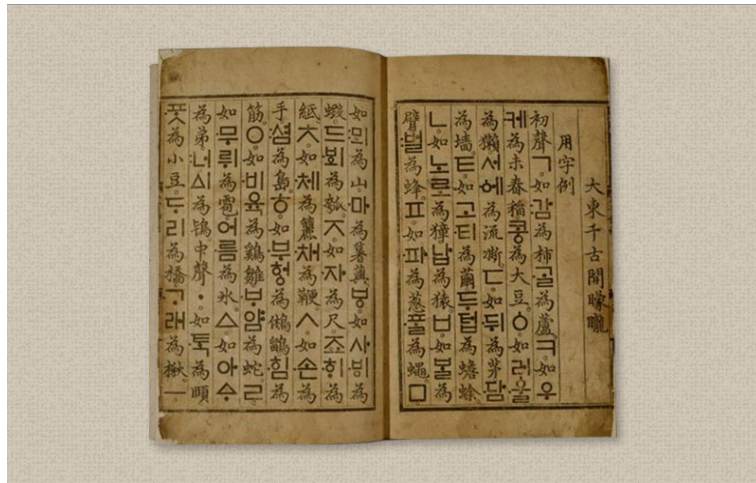 大東千古開朦朧
用字例
初聲ㄱ。如:감為柿。·ᄀᆞᆯ為蘆。ㅋ。如우
·케為未舂稻。콩為大豆。ㆁ。如러·울
為獺。서·에為流凘。ㄷ。如·뒤為茅。·담
為墻。ㅌ。如고·티為繭。두텁為蟾蜍。
ㄴ。如노로為獐。납為猿。ㅂ。如ᄇᆞᆯ為
臂。:벌為蜂。ㅍ。如·파為葱。·ᄑᆞᆯ為蠅。ㅁ。
如:뫼為山。·마為薯藇。ㅸ。如사·ᄫᅵ為
蝦。드·ᄫᅴ為瓠。ㅈ。如·자為尺。죠·ᄒᆡ為
紙。ㅊ。如·체為籭。·채為鞭。ㅅ。如·손為
手。:셤為島。ㅎ。如·부헝為鵂鶹。·힘為
筋。ㅇ。如·비육為鷄雛。·ᄇᆞ얌為蛇。ㄹ。
如·무뤼為雹。어·름為氷。ㅿ。如아ᅀᆞ
為弟。:너ᅀᅵ為鴇。中聲ㆍ。如·ᄐᆞᆨ為頤。
·ᄑᆞᆺ為小豆。ᄃᆞ리為橋。·ᄀᆞ래為楸。ㅡ。